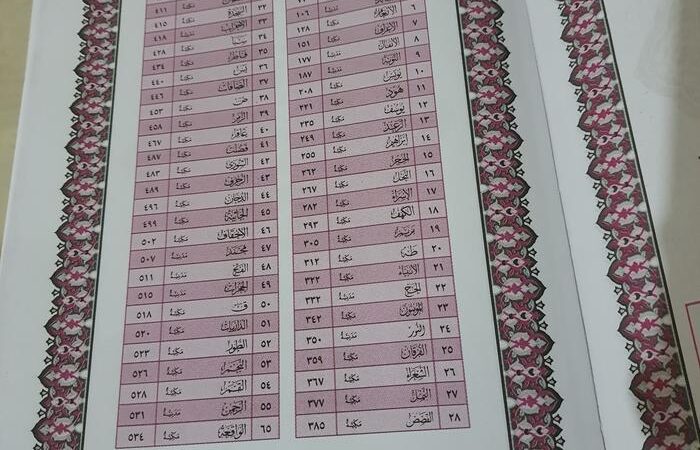 ٦ الأنعام مكية ١٢٨
٧ الأعراف مكية ١٥١
٨ الأنفال مدنية ١٧٧
٩ التوبة مدنية ١٨٧
١٠ يونس مكية ٢٠٨
١١ هود مكية ٢٢١
١٢ يوسف مكية ٢٣٥
١٣ الرعد مدنية ٢٤٩
١٤ إبراهيم مكية ٢٥٥
١٥ الحجر مكية ٢٦٢
١٦ النحل مكية ٢٦٧
١٧ الإسراء مكية ٢٨٢
١٨ الكهف مكية ٢٩٣
١٩ مريم مكية ٣٠٥
٢٠ طه مكية ٣١٢
٢١ الأنبياء مكية ٣٢٢
٢٢ الحج مدنية ٣٣٢
٢٣ المؤمنون مكية ٣٤٢
٢٤ النور مدنية ٣٥٠
٢٥ الفرقان مكية ٣٥٩
٢٦ الشعراء مكية ٣٦٧
٢٧ النمل مكية ٣٧٧
٢٨ القصص مكية ٣٨٥
٣٢ السجدة مكية ٤١٥
٣٣ الأحزاب مدنية ٤١٨
٣٤ سبأ مكية ٤٢٨
٣٥ فاطر مكية ٤٣٤
٣٦ يس مكية ٤٤٠
٣٧ الصافات مكية ٤٤٦
٣٨ ص مكية ٤٥٣
٣٩ الزمر مكية ٤٥٨
٤٠ غافر مكية ٤٦٧
٤١ فصلت مكية ٤٧٧
٤٢ الشورى مكية ٤٨٣
٤٣ الزخرف مكية ٤٨٩
٤٤ الدخان مكية ٤٩٦
٤٥ الجاثية مكية ٤٩٩
٤٦ الأحقاف مكية ٥٠٢
٤٧ محمد مدنية ٥٠٧
٤٨ الفتح مدنية ٥١١
٤٩ الحجرات مدنية ٥١٥
٥٠ ق مكية ٥١٨
٥١ الذاريات مكية ٥٢٠
٥٢ الطور مكية ٥٢٣
٥٣ النجم مكية ٥٢٦
٥٤ القمر مكية ٥٢٨
٥٥ الرحمن مدنية ٥٣١
٥٦ الواقعة مكية ٥٣٤